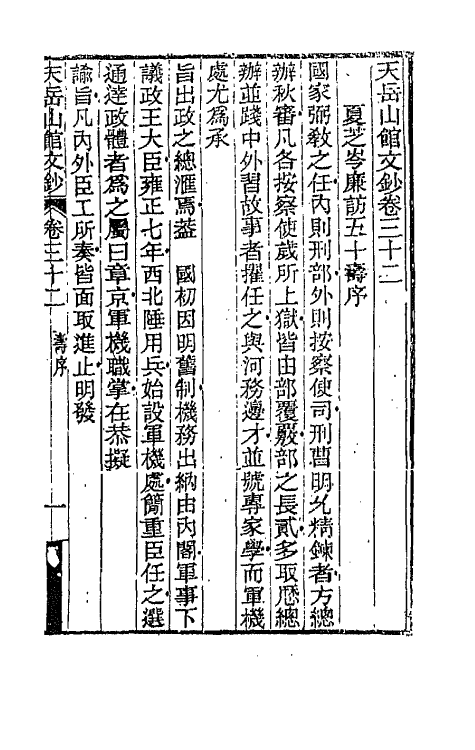 天岳山館文鈔卷三十二
夏芝岑廉訪五十壽序
國家弼教之任內則刑部外則按察使司刑曹明允精鍊者方總
辦秋審凡各按察使歲所上獄皆由部覆覈部之長貳多取感總
辦並踐中外習故事者擢任之與河務邊才並號專家學而軍機
處尤為承
旨出政之總滙焉葢　國初因明舊制機務出納由內閣軍事下
議政王大臣雍正七年西北陲用兵始設軍機處簡重臣任之選
通達政體者為之屬曰章京軍機職掌在恭擬
諭旨凡內外臣工所奏皆面取進止明發
天岳山館文鈔　卷三十二　壽序　一